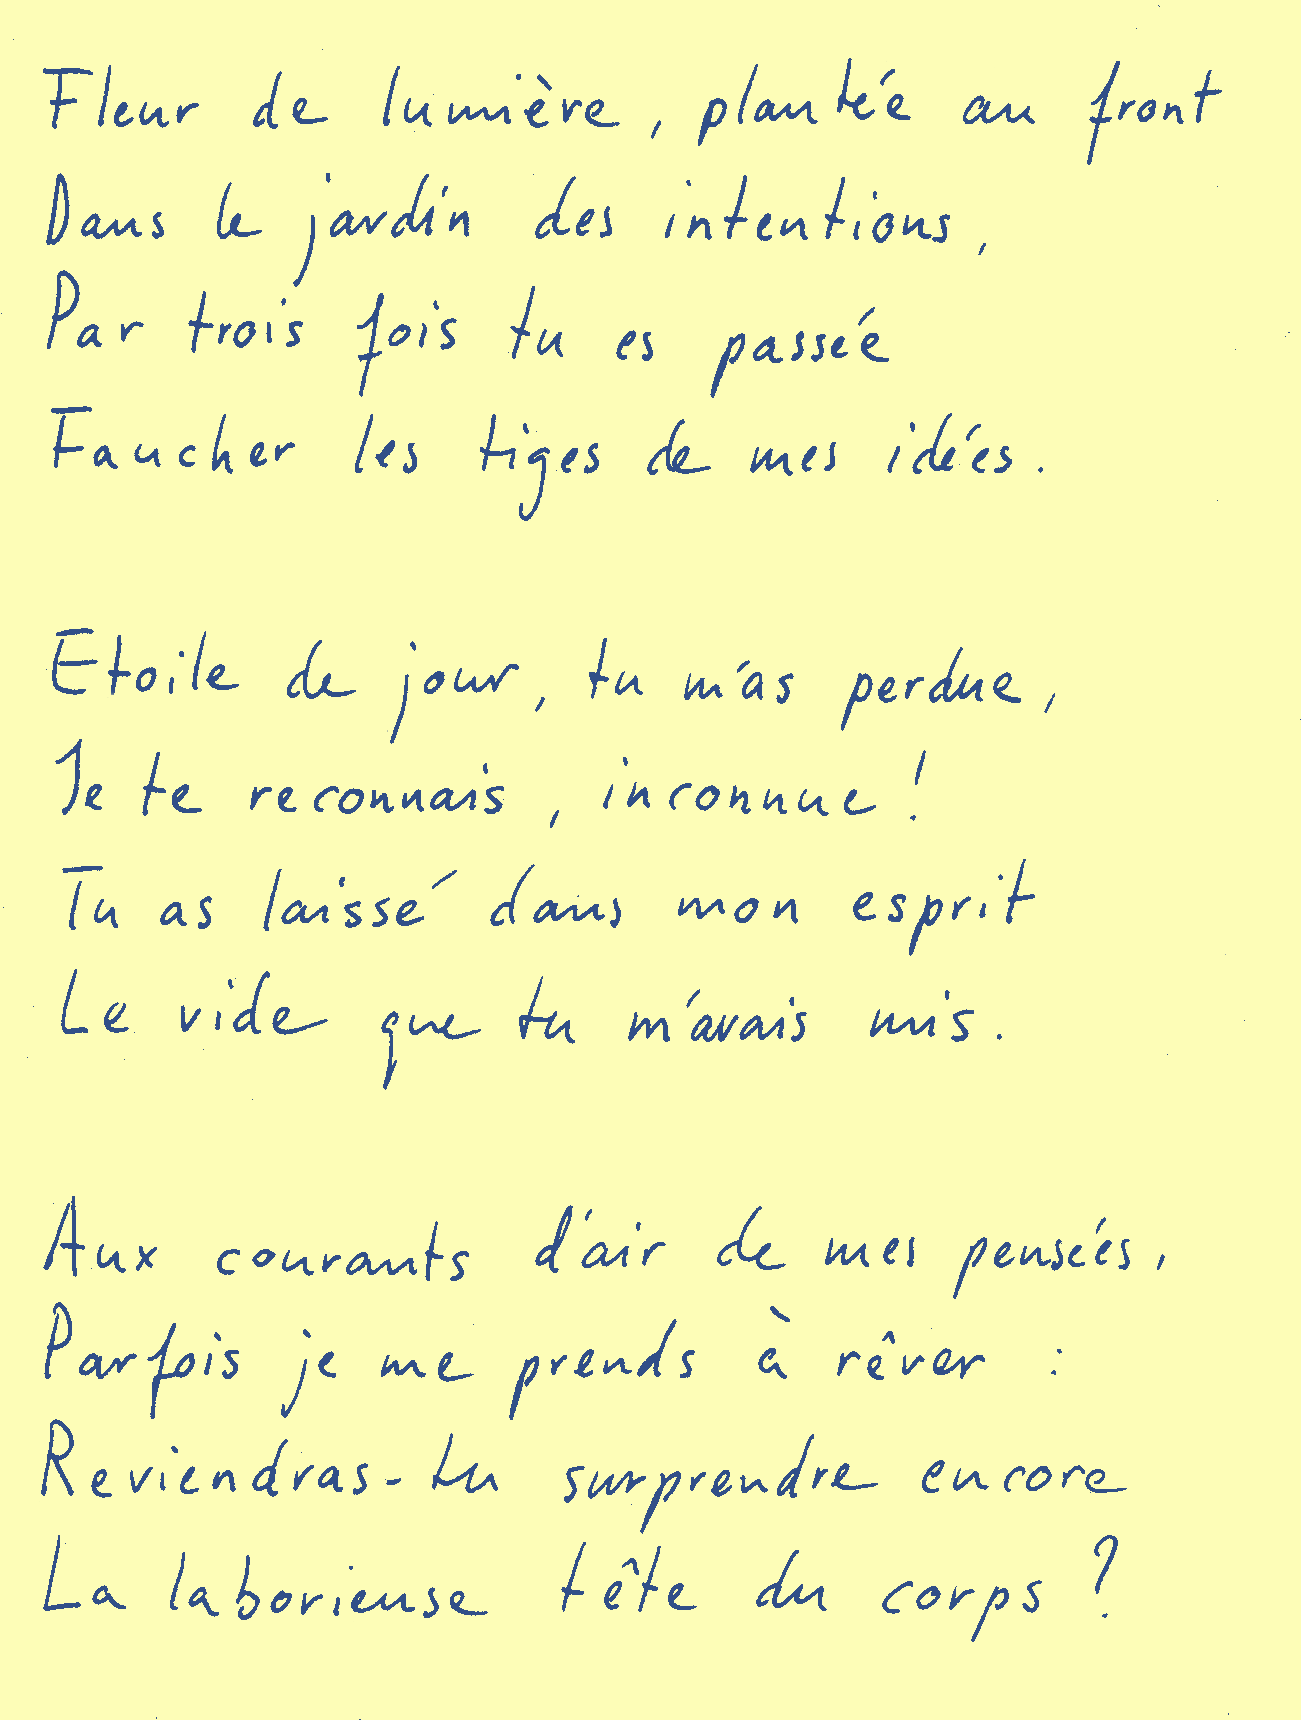 Fleur de lumière, plantée au front
Dans le jardin des intentions,
Par trois fois tu es passée
Faucher les tiges de mes idées.
Etoile de jour, tu m'as perdue,
Je te reconnais, inconnue !
Tu as laissé dans mon esprit
Le vide que tu m'avais mis.
Aux courants d'air de mes pensées,
Parfois je me prends à rêver :
Reviendras-tu surprendre encore
La laborieuse tête du corps ?